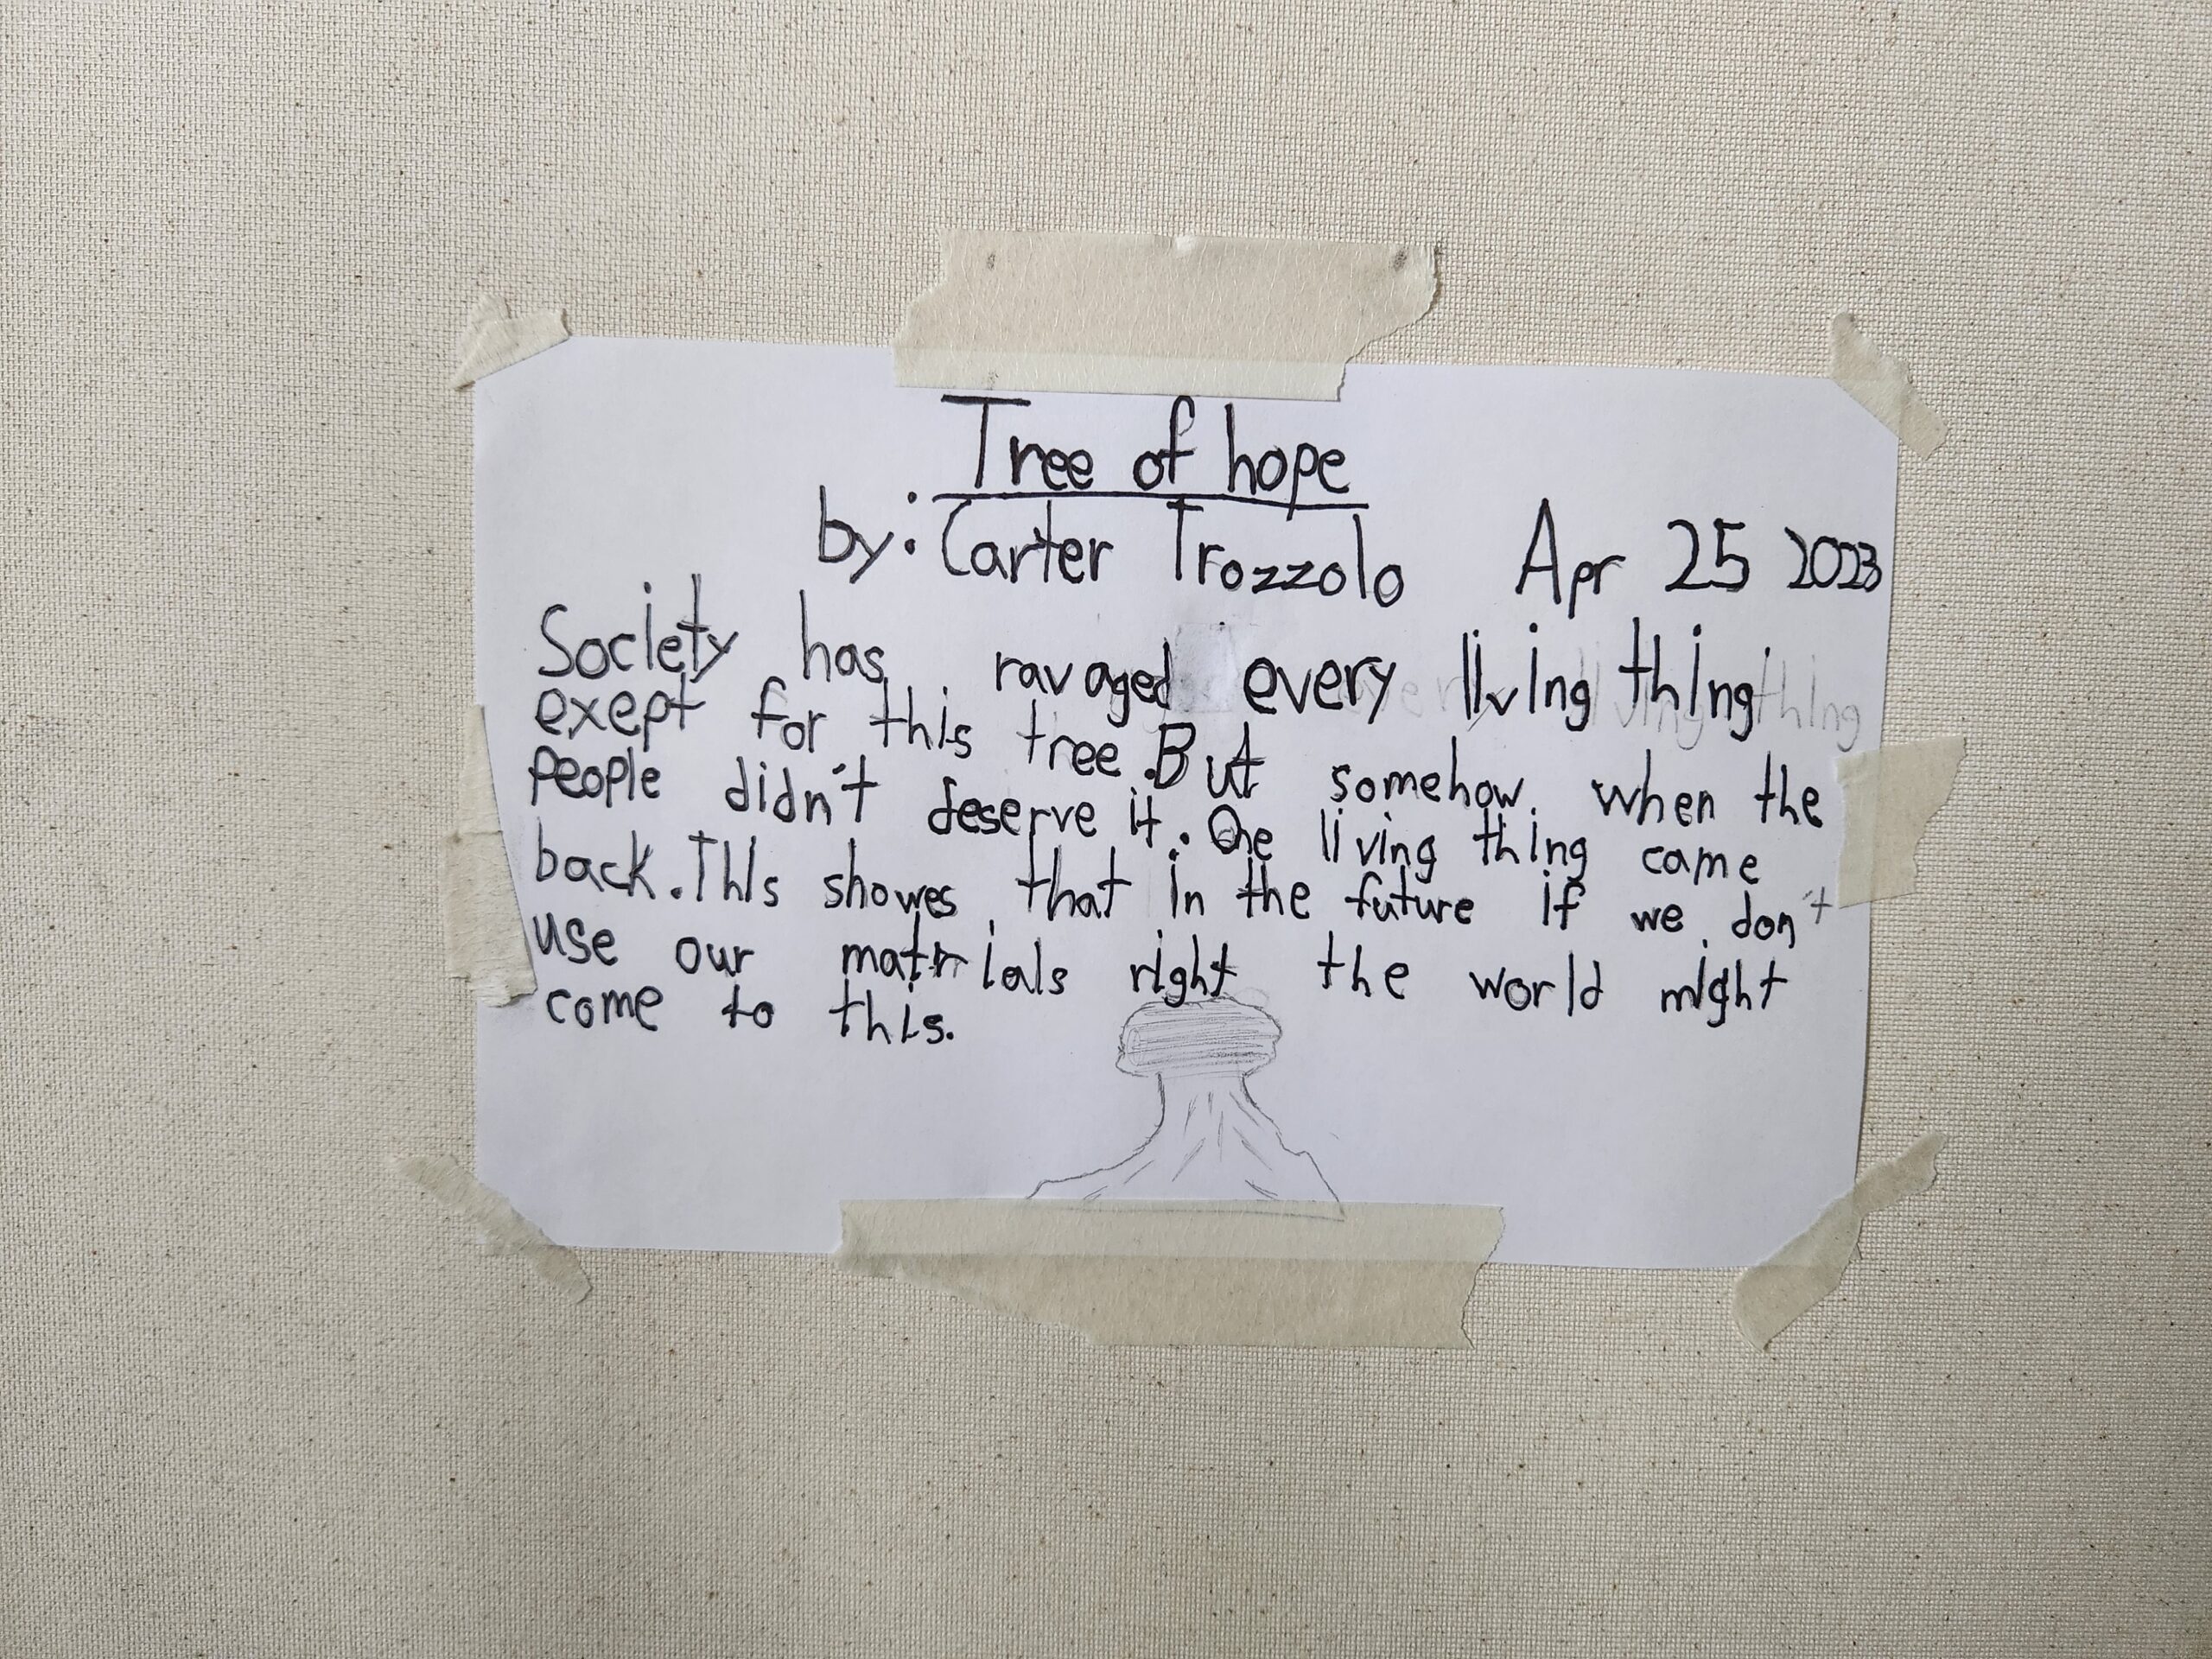 Tree of hope
by: Carter Trozzolo Apr 25 2023
Society has ravaged every living thing
exept for this tree. But somehow when the
people didn't deserve it. One living thing came
back. This showes that in the future if we don't
use our matrials right the world might
come to this.